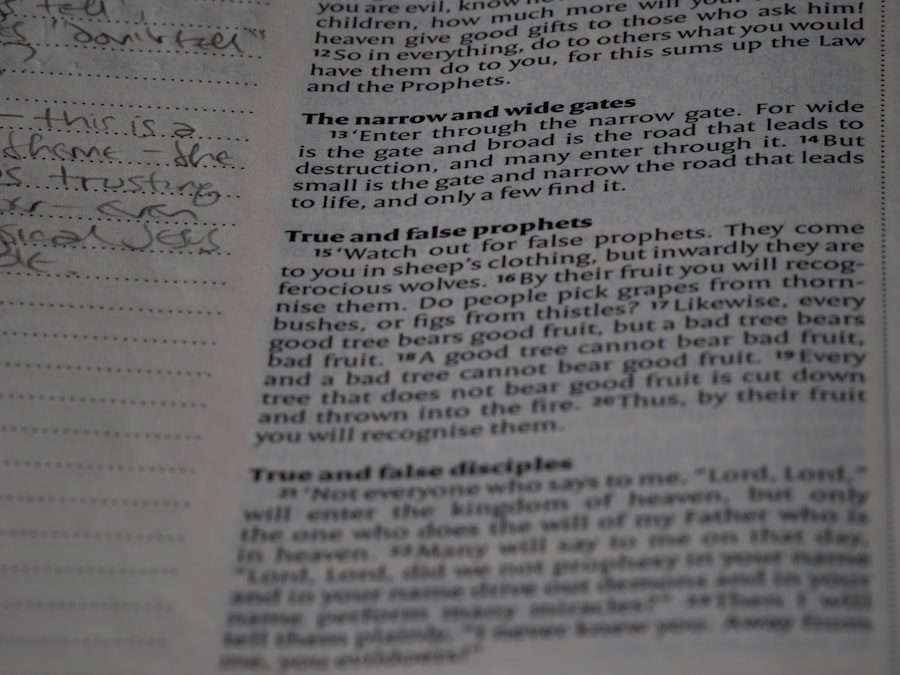 tell
"don't tell"
– this is a
theme – the
s trusting
er – even
sical Jesus
you are evil, know
children, how much more will your
heaven give good gifts to those who ask him!
12 So in everything, do to others what you would
have them do to you, for this sums up the Law
and the Prophets.
The narrow and wide gates
13 ‘Enter through the narrow gate. For wide
is the gate and broad is the road that leads to
destruction, and many enter through it. 14 But
small is the gate and narrow the road that leads
to life, and only a few find it.
True and false prophets
15 ‘Watch out for false prophets. They come
to you in sheep’s clothing, but inwardly they are
ferocious wolves. 16 By their fruit you will recog-
nise them. Do people pick grapes from thorn-
bushes, or figs from thistles? 17 Likewise, every
good tree bears good fruit, but a bad tree bears
bad fruit. 18 A good tree cannot bear bad fruit,
and a bad tree cannot bear good fruit. 19 Every
tree that does not bear good fruit is cut down
and thrown into the fire. 20 Thus, by their fruit
you will recognise them.
True and false disciples
21 ‘Not everyone who says to me, “Lord, Lord,”
will enter the kingdom of heaven, but only
the one who does the will of my Father who is
in heaven. 22 Many will say to me on that day,
“Lord, Lord, did we not prophesy in your name
and in your name drive out demons and in your
name perform many miracles?” 23 Then I will
tell them plainly, “I never knew you. Away from
me, you evildoers!”